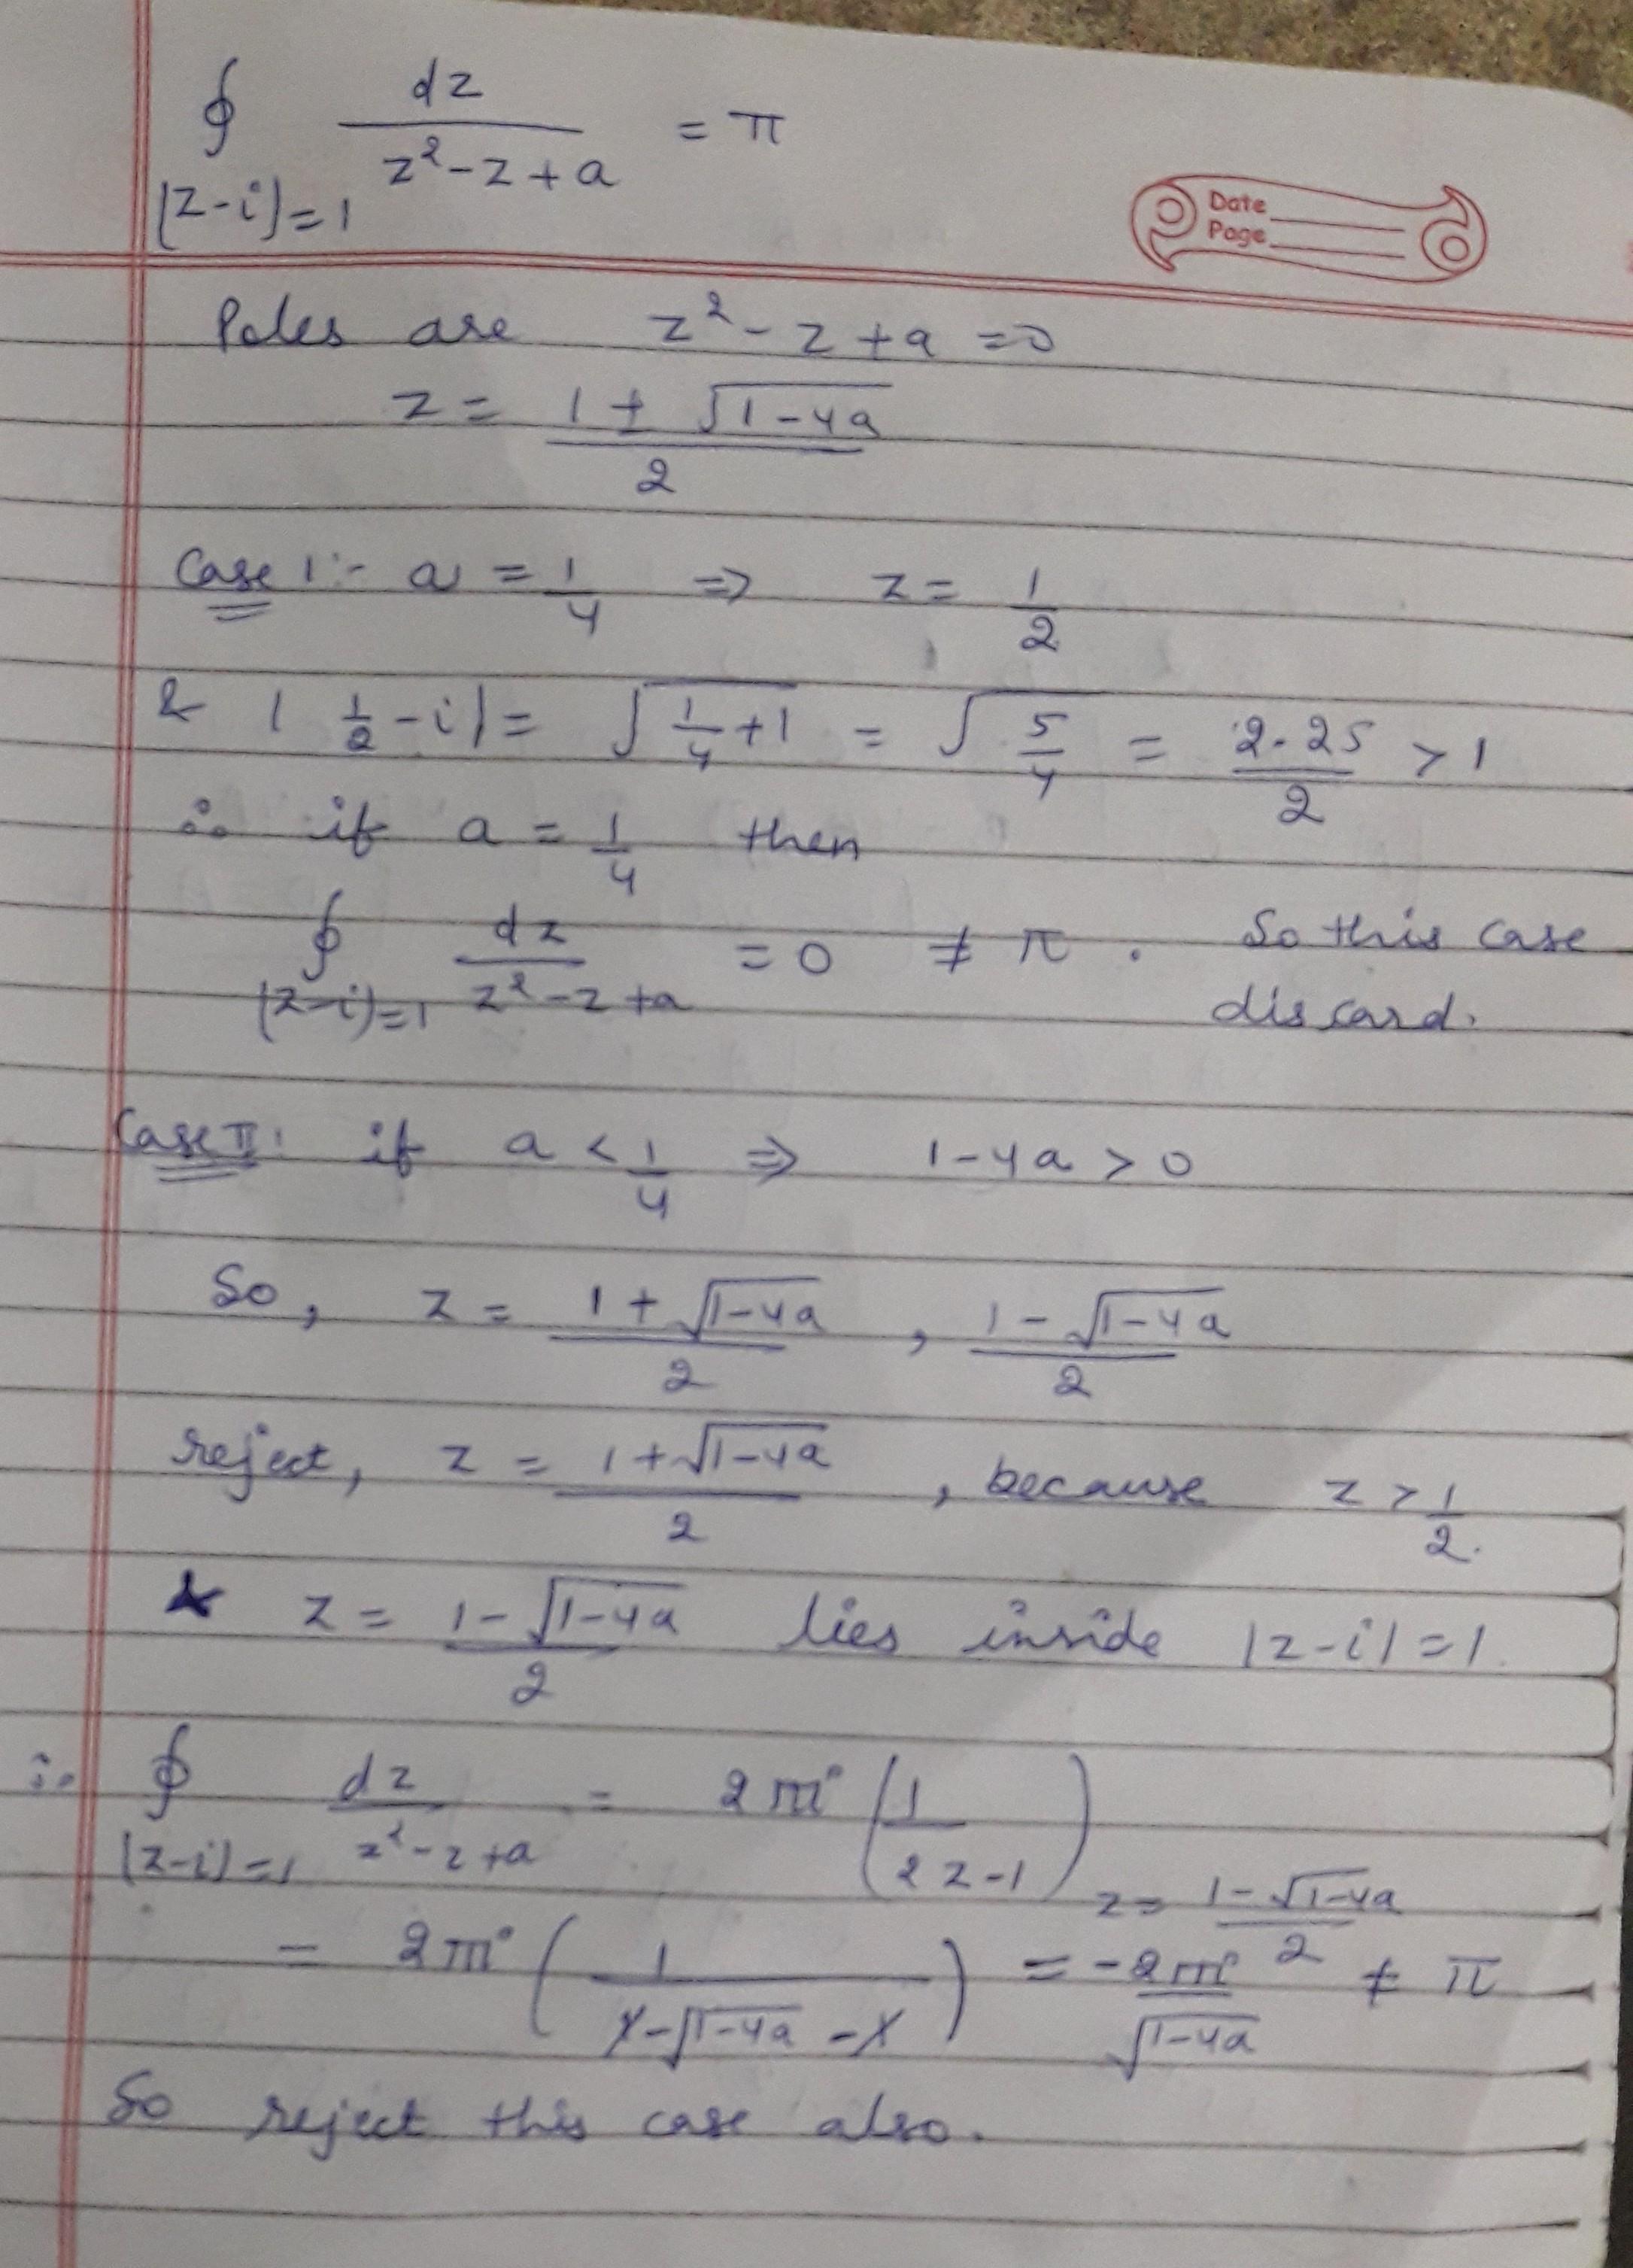 ∮ dz / (z² - z + a) = π
|z-i|=1
Date
Page
Poles are z² - z + a = 0
z = (1 ± √(1-4a)) / 2
Case 1:- a = 1/4 ⇒ z = 1/2
& |1/2 - i| = √(1/4 + 1) = √(5/4) = 2.25/2 > 1
∴ if a = 1/4 then
∮ dz / (z² - z + a) = 0 ≠ π. So this case
|z-i|=1 discard.
Case II: if a < 1/4 ⇒ 1-4a > 0
So, z = (1 + √(1-4a)) / 2 , (1 - √(1-4a)) / 2
reject, z = (1 + √(1-4a)) / 2 , because z > 1/2.
& z = (1 - √(1-4a)) / 2 lies inside |z-i| = 1.
∴ ∮ dz / (z² - z + a) = 2πi (1 / (2z-1)) z = (1 - √(1-4a)) / 2
|z-i|=1
= 2πi (1 / (1 - √(1-4a) - 1)) = -2πi / √(1-4a) ≠ π
So reject this case also.